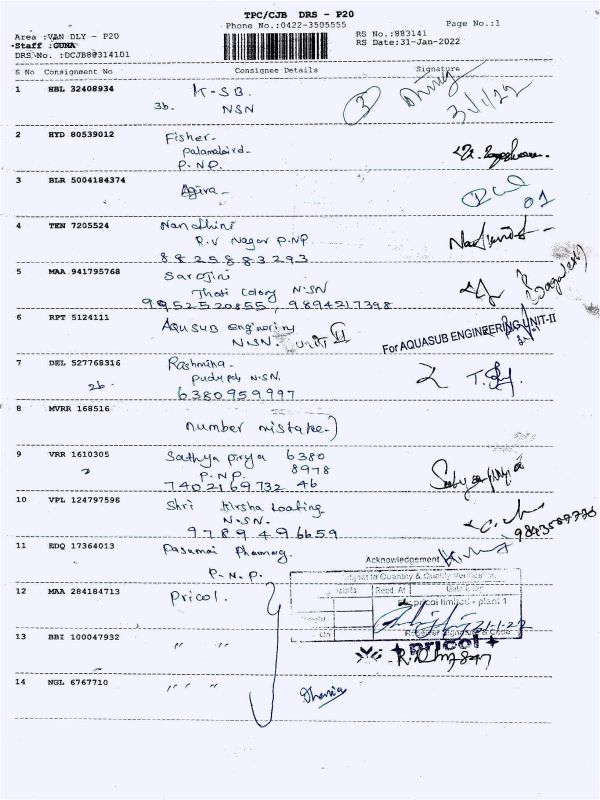 TPC/CJB DRS - P20
Phone No.:0422-3505555
Page No.:1
Area :VAN DLY - P20
RS No.:883141
Staff :GUNA
RS Date:31-Jan-2022
DRS No. :DCJB88314101
S No Consignment No Consignee Details Signature
1 HBL 32408934 K-SB.
3b. NSN
3
31/1/22
2 HYD 80539012 Fisher.
P.N.P.
3 BLR 5004184374
01
4 TEN 7205524 Nandhini
R.V Nagar P.NP
8825883293
5 MAA 941795768 Sarojini
Thoti Colony N.SN
9952520855, 9894217398
6 RPT 5124111 Aqusub Enginering
N.SN. UNIT II
For AQUASUB ENGINEERING UNIT-II
7 DEL 527768316 Rashmika-
2b. N.SN.
6380959997
8 MVRR 168516
number mistake
9 VRR 1610305 Sathya pirya 6380
P.N.P. 8978
7402169732 46
Sathyapriya
10 VPL 124797598 Shri Coating
N.SN.
9789496659
11 EDQ 17364013 Pasumai Pharmacy.
P.N.P.
Acknowledgement
Subject to Quantity & Quality Verification
12 MAA 284184713 Pricol.
Recd. At
pricol limited - plant 1
Receiver Signature & Code
13 BBI 100047932 " "
pricol
14 NGL 6767710 " " "